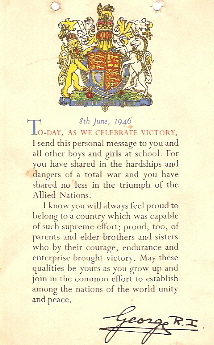 8th June, 1946
TO-DAY, AS WE CELEBRATE VICTORY,
I send this personal message to you and
all other boys and girls at school. For
you have shared in the hardships and
dangers of a total war and you have
shared no less in the triumph of the
Allied Nations.
I know you will always feel proud to
belong to a country which was capable
of such supreme effort; proud, too, of
parents and elder brothers and sisters
who by their courage, endurance and
enterprise brought victory. May these
qualities be yours as you grow up and
join in the common effort to establish
among the nations of the world unity
and peace.
George R.I.